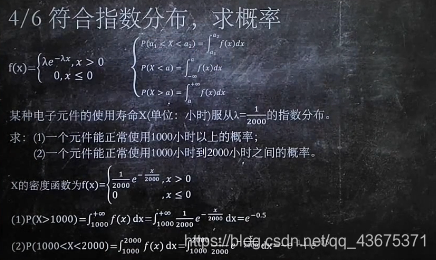 4/6 符合指数分布，求概率
f(x)={λe^{-λx}, x > 0
0, x ≤ 0
P(a₁ < X < a₂) = ∫_{a₁}^{a₂} f(x)dx
P(X < a) = ∫_{-∞}^{a} f(x)dx
P(X > a) = ∫_{a}^{+∞} f(x)dx
某种电子元件的使用寿命X(单位：小时)服从λ=1/2000的指数分布。
求：(1)一个元件能正常使用1000小时以上的概率；
(2)一个元件能正常使用1000小时到2000小时之间的概率。
X的密度函数为f(x)={1/2000 e^{-x/2000}, x > 0
0 , x ≤ 0
(1)P(X>1000)=∫_{1000}^{+∞} f(x) dx=∫_{1000}^{+∞} 1/2000 e^{-x/2000} dx=e^{-0.5}
(2)P(1000<X<2000)=∫_{1000}^{2000} f(x) dx=∫_{1000} 2000 dx=
https://blog.csdn.net/qq_43675371